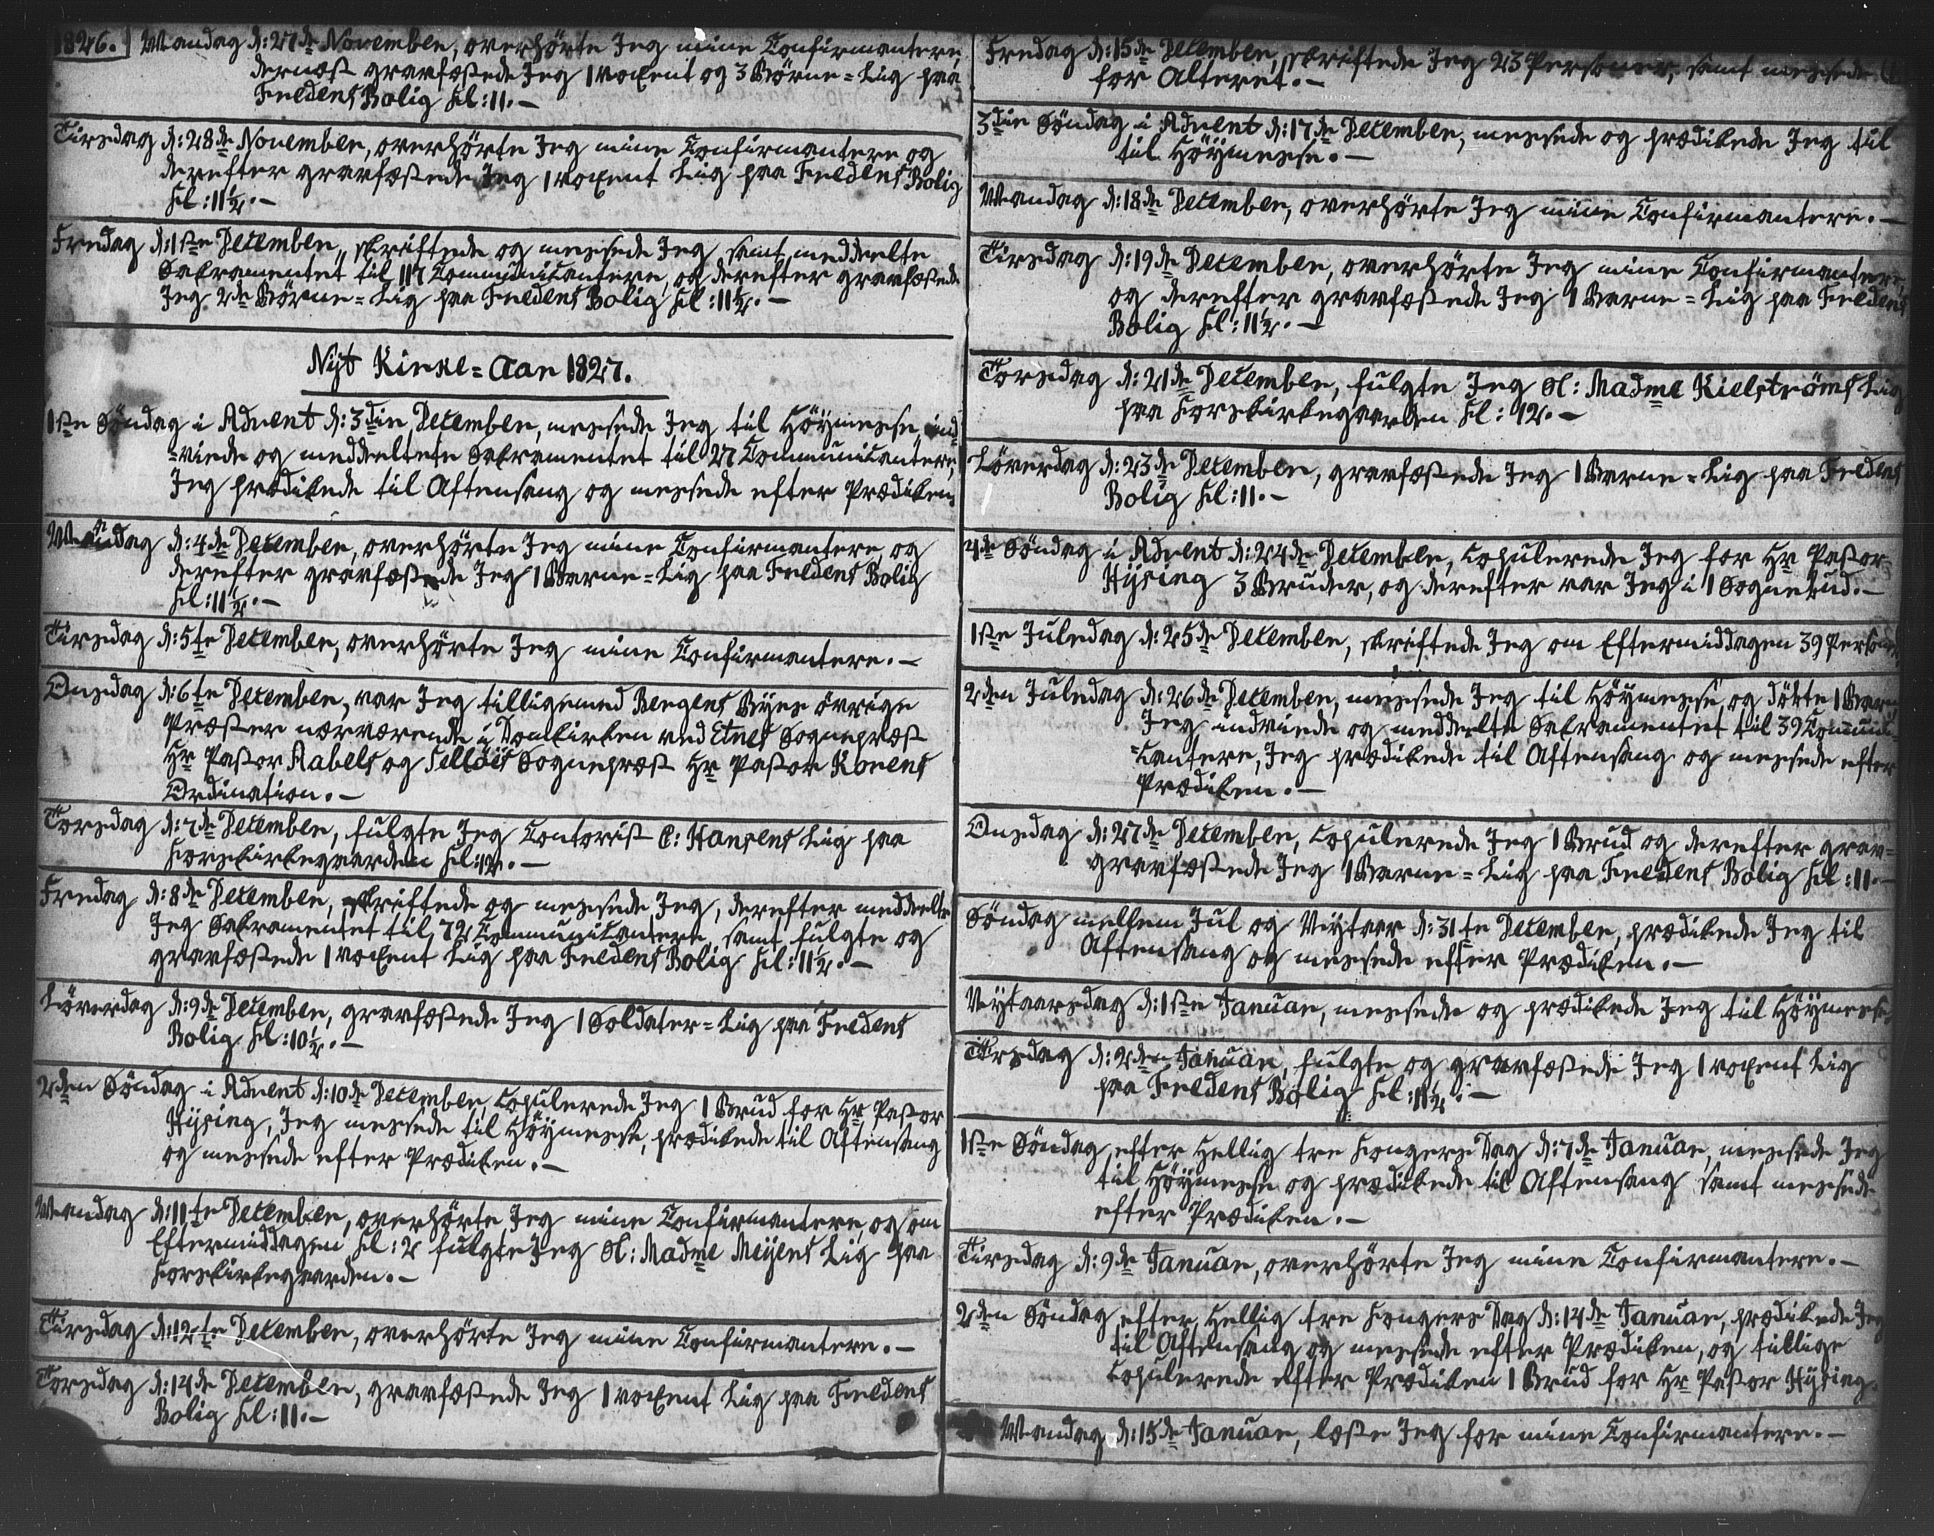 1826. Mandag d: 27de November, overhørte Jeg mine Confirmantere,
dernæst gravfæstede Jeg 1 voxent og 3 Børne=Lig paa
Fredens Bolig Kl: 11. —
Tirsdag d: 28de November, overhørte Jeg mine Confirmantere og
derefter gravfæstede Jeg 1 voxent Liig paa Fredens Bolig
Kl: 11½. —
Fredag d: 1ste December, skriftede og messede Jeg samt meddeelte
Sakramentet til 117 Communicantere, og derefter gravfæstede
Jeg 2de Børne=Lig paa Fredens Bolig Kl: 11½. —
Nyt Kirke=Aar 1827.
1ste Søndag i Advent d: 3die December, messede Jeg til Høymesse, ind=
=viede og meddeeltete Sakramentet til 27 Communicantere,
Jeg prædikede til Aftensang og messede efter Prædiken.
Mandag d: 4de December, overhørte Jeg mine Confirmantere og
derefter gravfæstede Jeg 1 Barne=Lig paa Fredens Bolig
Kl: 11½. —
Tirsdag d: 5te December, overhørte Jeg mine Confirmantere. —
Onsdag d: 6te December, var Jeg tilligemed Bergens Byes øvrige
Præster nærværende i Domkirken ved Etnes Sognepræst
Hr Pastor Aabels og Selløes Sognepræst Hr Pastor Korens
Ordination. —
Torsdag d: 7de December, fulgte Jeg Contorist C: Hansens Liig paa
Korskirkegaarden Kl: 12. —
Fredag d: 8de December, skriftede og messede Jeg, derefter meddeelte
Jeg Sakramentet til 72 Communicantere, samt fulgte og
gravfæstede 1 voxent Lig paa Fredens Bolig Kl: 11½. —
Løverdag d: 9de December, gravfæstede Jeg 1 Soldater=Lig paa Fredens
Bolig Kl: 10½. —
2den Søndag i Advent d: 10de December, Copulerede Jeg 1 Brud for Hr Pastor
Hysing, Jeg messede til Høymesse, prædikede til Aftensang
og messede efter Prædiken. —
Mandag d: 11te December, overhørte Jeg mine Confirmantere, og om
Eftermiddagen Kl: 2 fulgte Jeg Sl: Madme Meyers Lig paa
Korskirkegaarden. —
Tirsdag d: 12te December, overhørte Jeg mine Confirmantere. —
Torsdag d: 14de December, gravfæstede Jeg 1 voxent Lig paa Fredens
Bolig Kl: 11. —
Fredag d: 15de December, skriftede Jeg 23 Personer, samt messede
for Alteret. —
3die Søndag i Advent d: 17de December, messede og prædikede Jeg til
til Høymesse. —
Mandag d: 18de December, overhørte Jeg mine Confirmantere. —
Tirsdag d: 19de December, overhørte Jeg mine Confirmantere,
og derefter gravfæstede Jeg 1 Barne=Liig paa Fredens
Bolig Kl: 11½. —
Torsdag d: 21de December, fulgte Jeg Sl: Madme Kielstrøms Lig
paa Korskirkegaarden Kl: 12. —
Løverdag d: 23de December, gravfæstede Jeg 1 Barne=Lig paa Fredens
Bolig Kl: 11. —
4de Søndag i Advent d: 24de December, Copulerede Jeg for Hr Pastor
Hysing 3 Bruder, og derefter var Jeg i 1 Sognebud. —
1ste Juledag d: 25de December, skriftede Jeg om Eftermiddagen 39 Personer
2den Juledag d: 26de December, messede Jeg til Høymesse, og døbte 1 Barn
Jeg indviede og meddeelte Sakramentet til 39 Communi=
=cantere, Jeg prædikede til Aftensang og messede efter
Prædiken. —
Onsdag d: 27de December, Copulerede Jeg 1 Brud og derefter grav=
gravfæstede Jeg 1 Barne=Liig paa Fredens Bolig Kl: 11. —
Søndag mellem Jul og Nytaar d: 31te December, prædikede Jeg til
Aftensang og messede efter Prædiken. —
Nytaarsdag d: 1ste Januar, messede og prædikede Jeg til Høymesse.
Tirsdag d: 2den Januar, fulgte og gravfæstede Jeg 1 voxent Lig
paa Fredens Bolig Kl: 11½. —
1ste Søndag efter Hellig tre Kongers Dag d: 7de Januar, messede Jeg
til Høymesse og prædikede til Aftensang samt messede
efter Prædiken. —
Tirsdag d: 9de Januar, overhørte Jeg mine Confirmantere. —
2den Søndag efter Hellig tre Kongers Dag d: 14de Januar, prædikede Jeg
til Aftensang og messede efter Prædiken, og tillige
Copulerede efter Prædiken 1 Brud for Hr Pastor Hysing.
Mandag d: 15de Januar, læste Jeg for mine Confirmantere. —